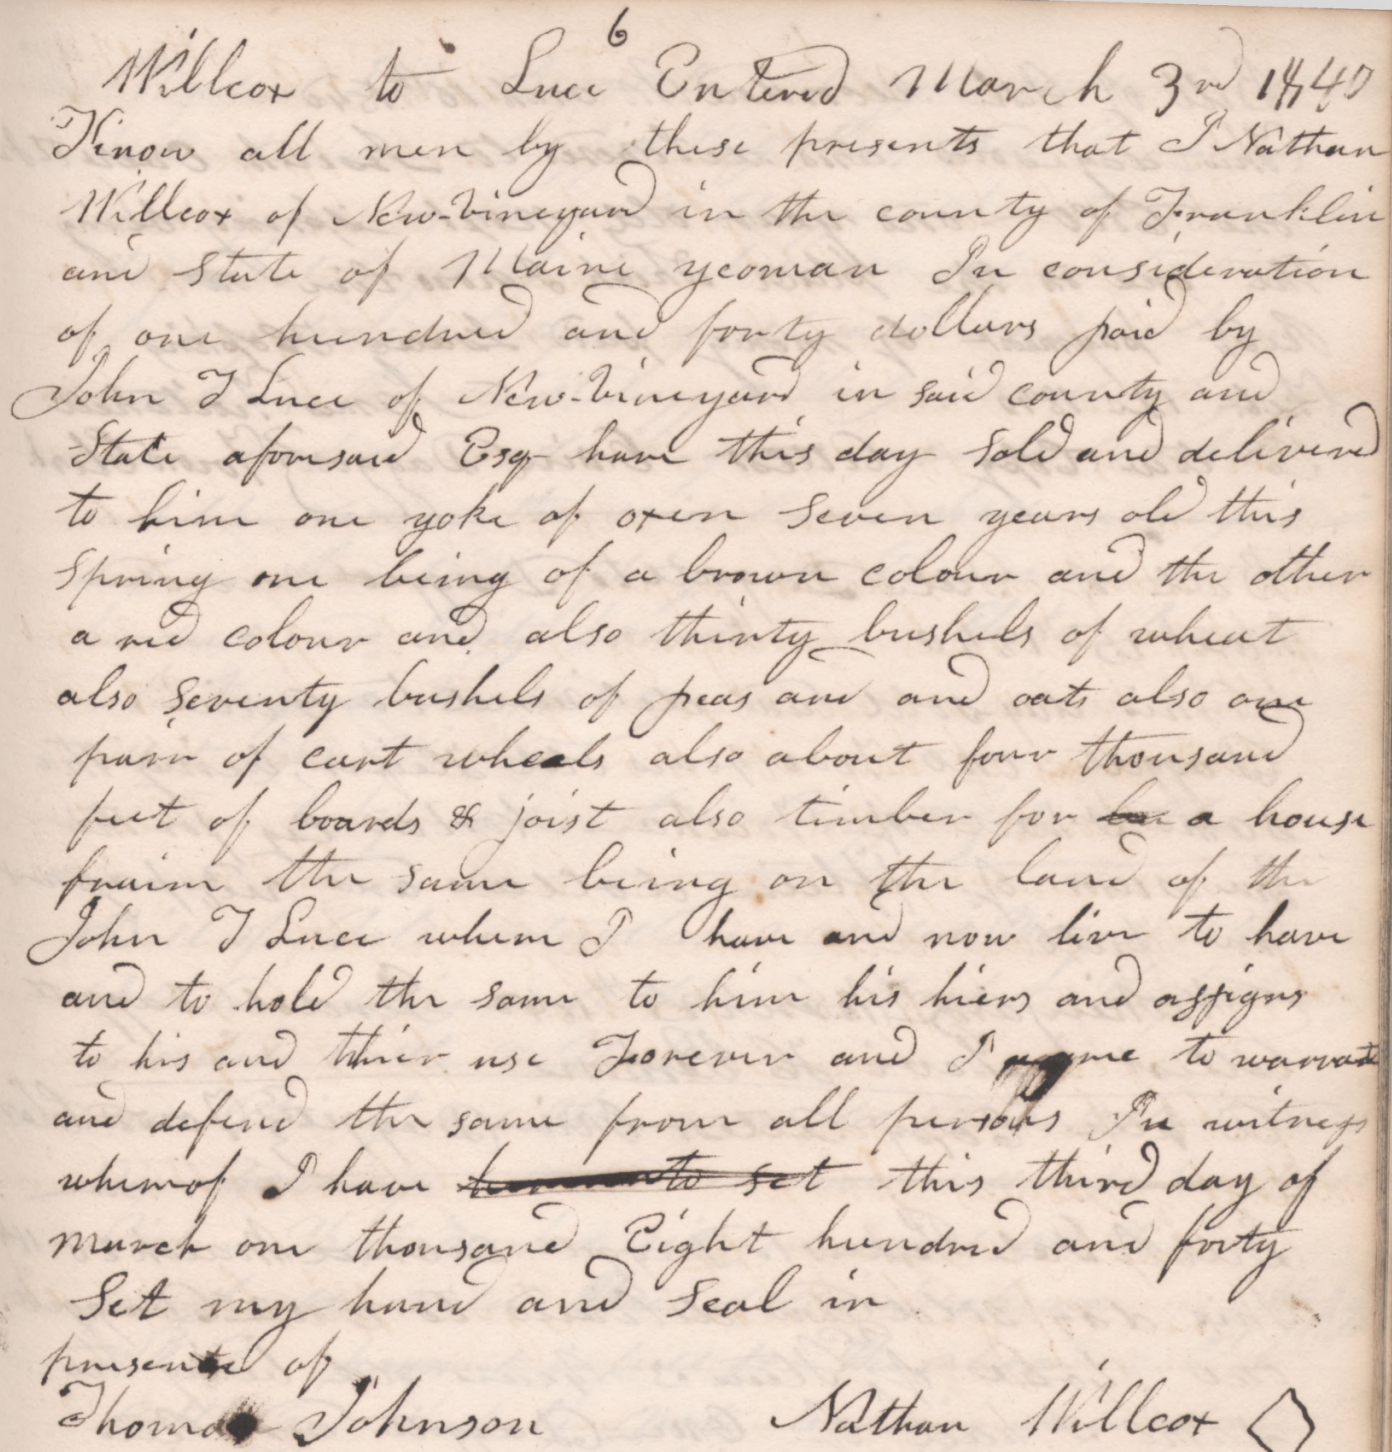 6
Willcox to Luce Entered March 3rd 1840
Know all men by these presents that I Nathan
Willcox of New-Vineyard in the county of Franklin
and State of Maine yeoman In consideration
of one hundred and forty dollars paid by
John T Luce of New-Vineyard in said county and
State aforesaid Esqr have this day sold and delivered
to him one yoke of oxen seven years old this
spring one being of a brown colour and the other
a red colour and also thirty bushels of wheat
also seventy bushels of peas and and oats also one
pair of cart wheels also about four thousand
feet of boards & joist also timber for a house
fraim the same being on the land of the
John T Luce where I have and now live to have
and to hold the same to him his hiers and assigns
to his and thier use Forever and I agree to warrant
and defend the same from all persons In witness
whereof I have hereunto set this third day of
march one thousand Eight hundred and forty
Set my hand and seal in
presence of
Thomas Johnson Nathan Willcox